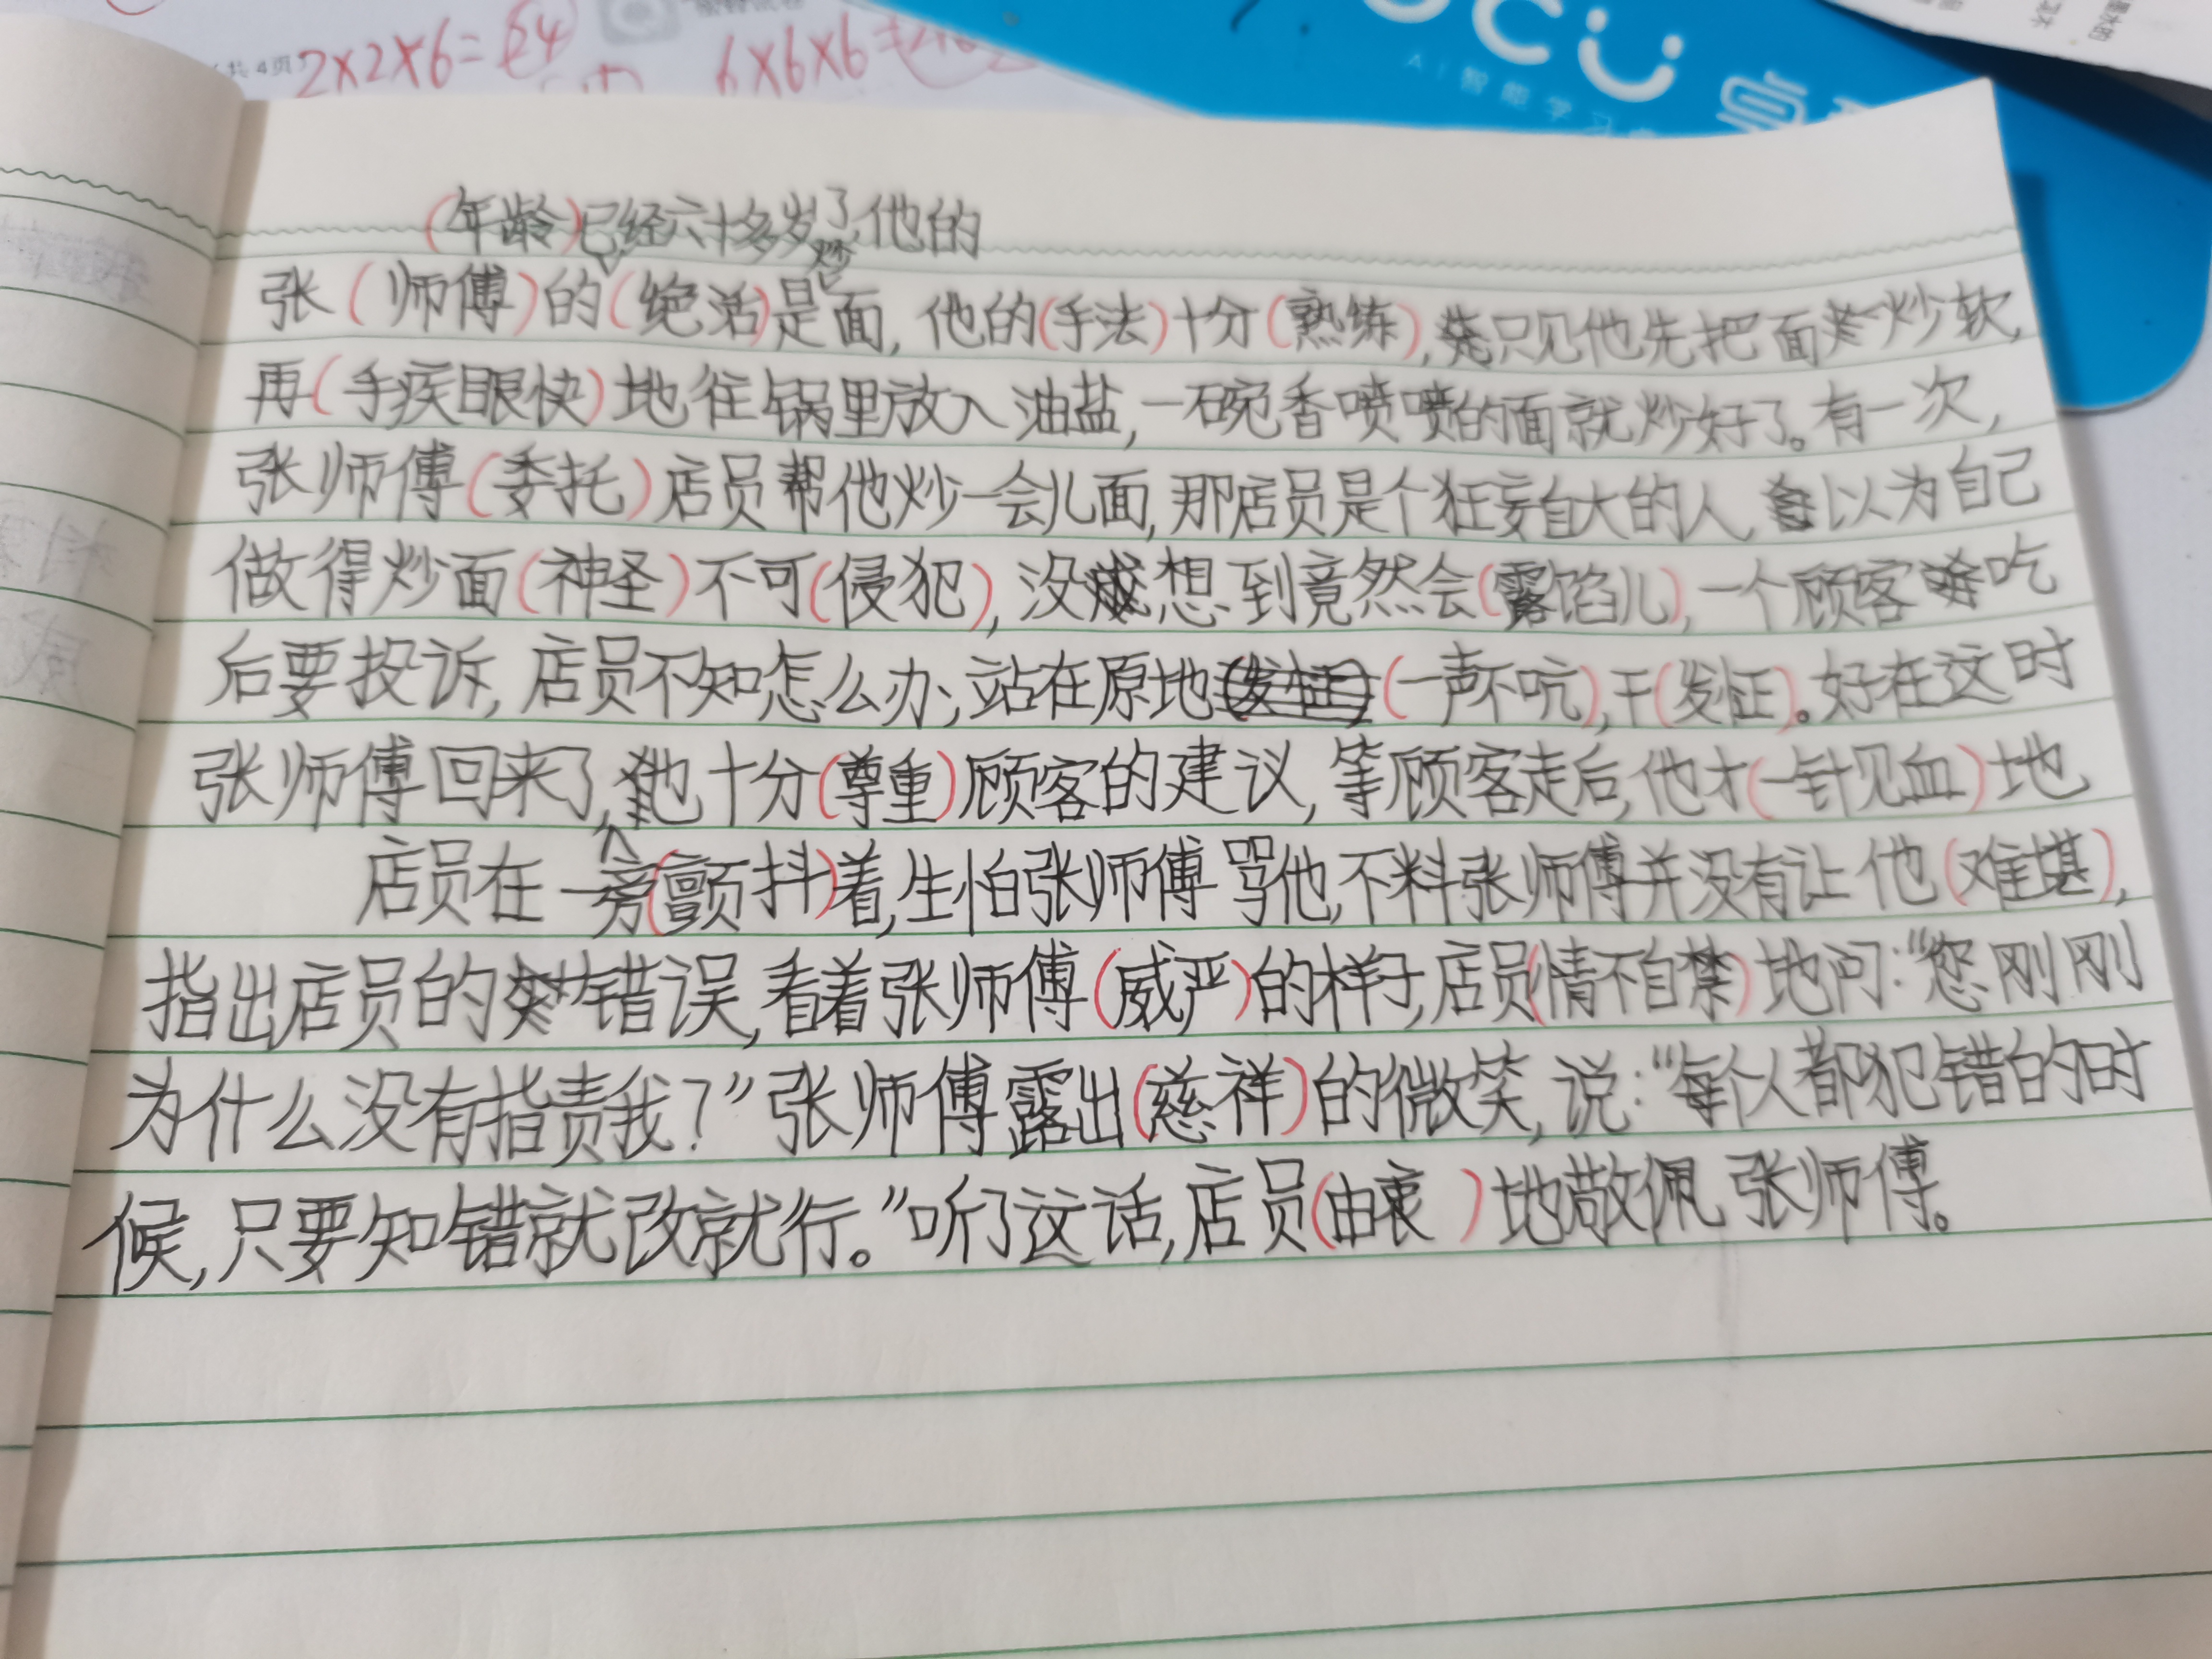 共4页
2×2×6=24
6×6×6=
AI智能学习
(年龄)已经六十多岁了,他的
炒
张(师傅)的(绝活)是面,他的(手法)十分(熟练),只见他先把面炒软,
再(手疾眼快)地往锅里放入油盐,一碗香喷喷的面就炒好了。有一次,
张师傅(委托)店员帮他炒一会儿面,那店员是个狂妄自大的人,以为自己
做得炒面(神圣)不可(侵犯),没想到竟然会(露馅儿),一个顾客吃
后要投诉,店员不知怎么办,站在原地(一声不吭),干(发怔)。好在这时
张师傅回来了,他十分(尊重)顾客的建议,等顾客走后,他才(一针见血)地
店员在一旁(颤抖)着,生怕张师傅骂他,不料张师傅并没有让他(难堪),
指出店员的错误,看着张师傅(威严)的样子,店员(情不自禁)地问:“您刚刚
为什么没有指责我?”张师傅露出(慈祥)的微笑,说:“每个人都犯错的时
候,只要知错就改就行。”听了这话,店员(由衷)地敬佩张师傅。